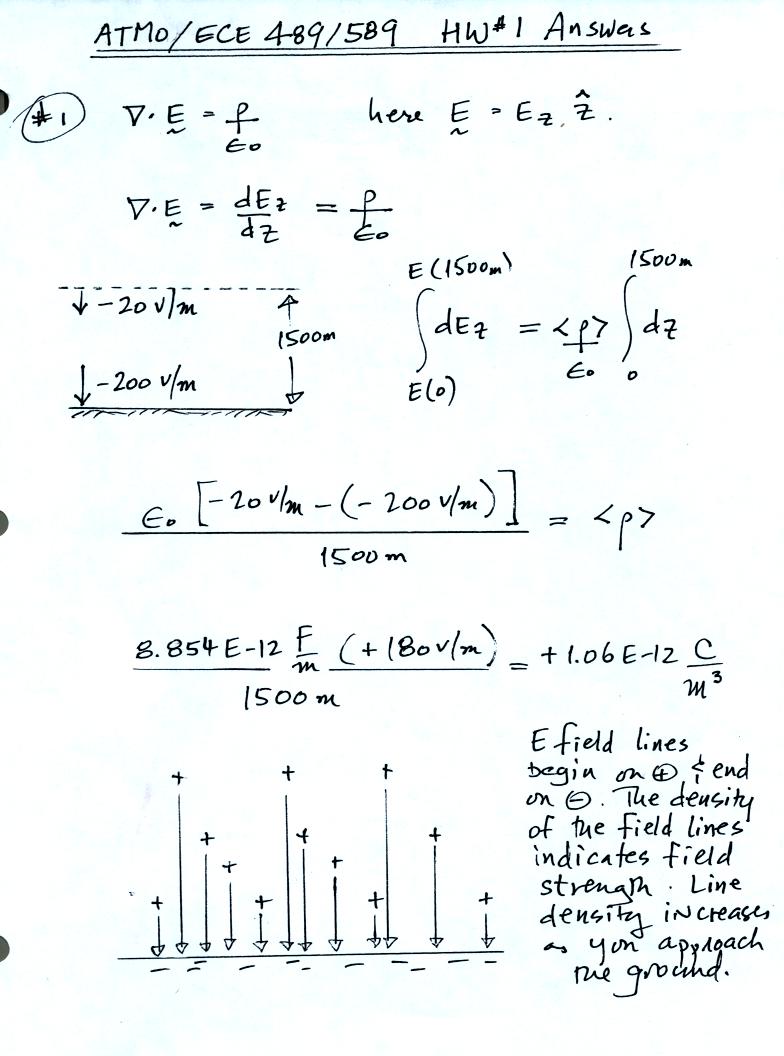 ATMO/ECE 489/589 HW#1 Answers
#1 ∇·E = ρ/ε₀ here E = E_z ẑ.
∇·E = dE_z/dz = ρ/ε₀
↓ -20 V/m
1500m
↓ -200 V/m
∫_{E(0)}^{E(1500m)} dE_z = <ρ>/ε₀ ∫_0^{1500m} dz
ε₀ [-20 V/m - (-200 V/m)] / 1500 m = <ρ>
8.854E-12 F/m (+180 V/m) / 1500 m = +1.06E-12 C/m³
E field lines
begin on ⊕ & end
on ⊖. The density
of the field lines
indicates field
strength. Line
density increases
as you approach
the ground.
+ + + + + + + + + + + +
— — — — — — — — — —